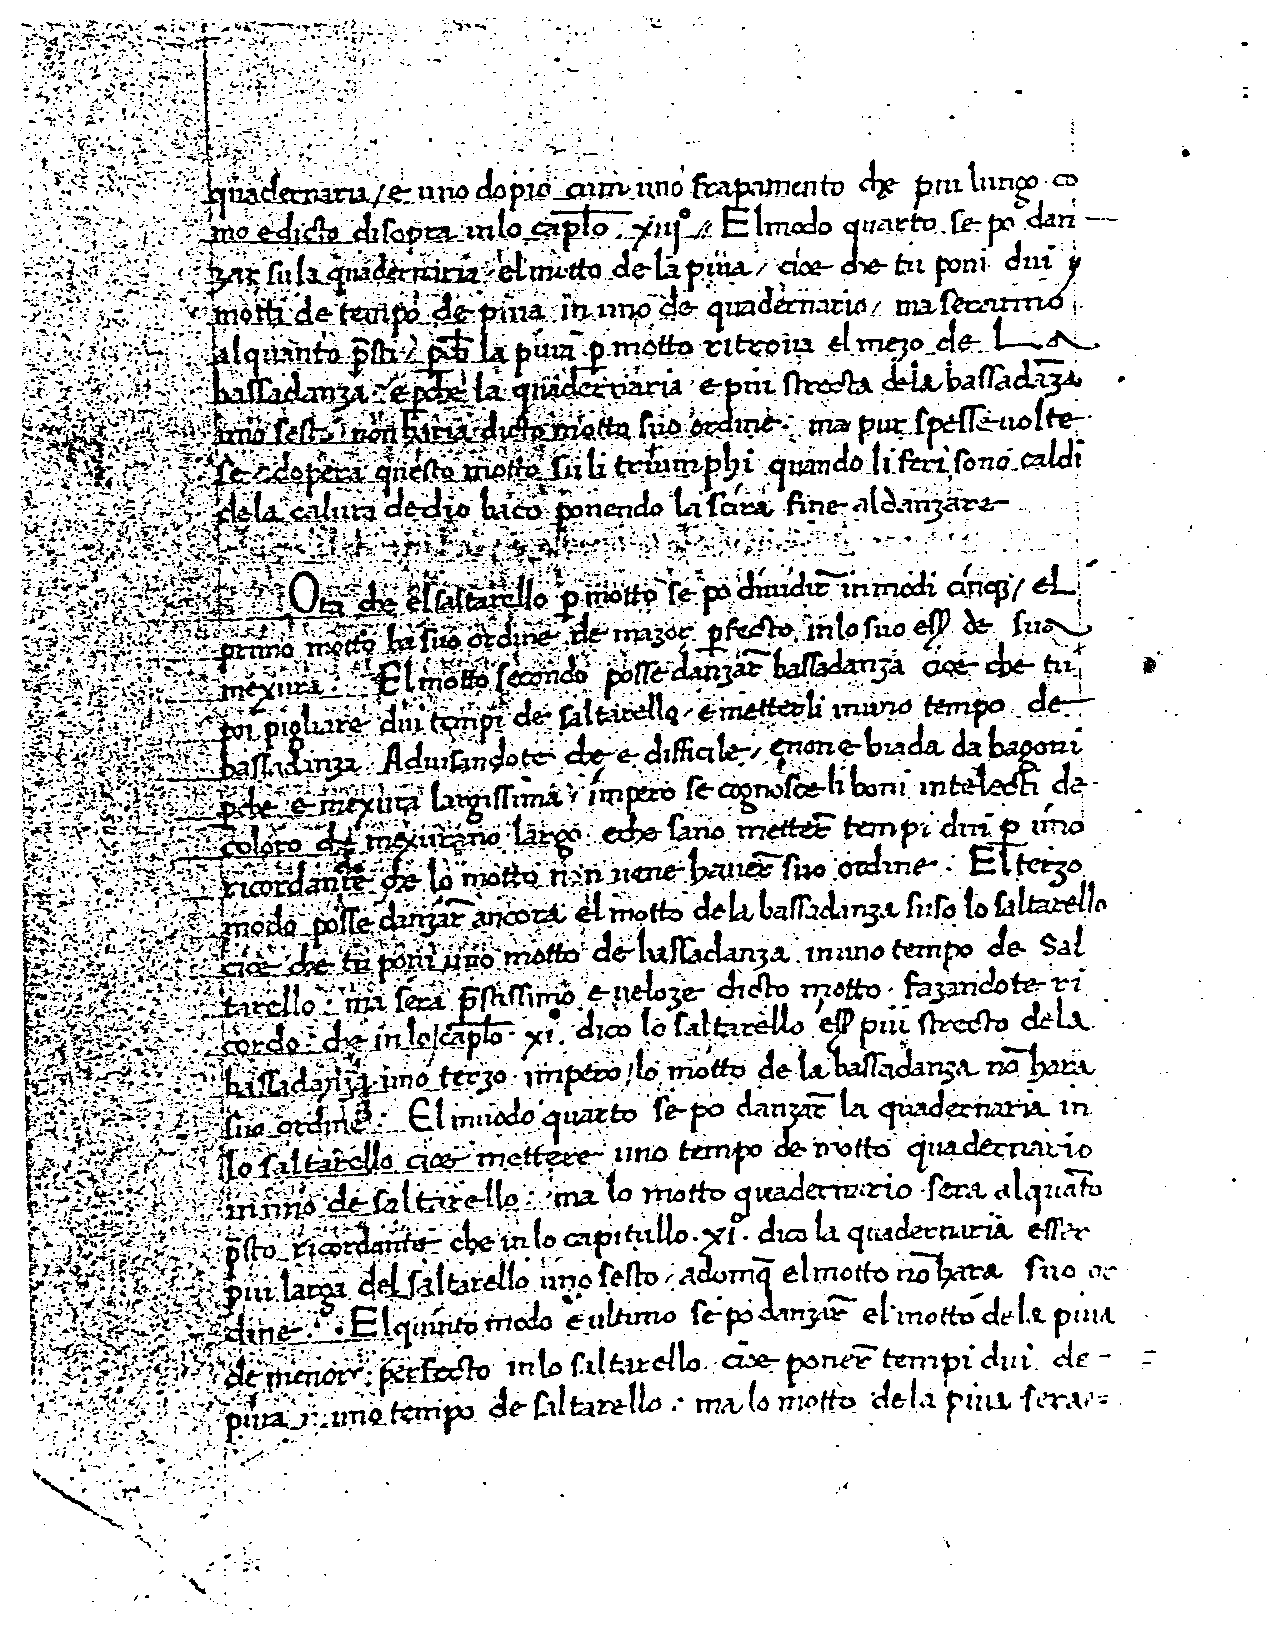 quadernaria / e uno dopio cum uno frapamento che piu lungo co
mo e dicto disopra in lo cap̅lo . xiiij° // El modo quarto se po dan
zar su la quadernaria el motto de la piua / cioe che tu poni dui
motti de tempo de piua in uno de quadernario / ma seranno
alquanto p̅sti / p̅ch̅ la piua p̱ motto ritroiu el mezo de La
bassadanza : e p̱che la quadernaria e piu strecta de la bassadāza
uno sesto : non haria dicto motto suo ordine : ma pur spesse uolte
se adopera questo motto su li triumphi quando li feri sono caldi
de la calura de dio baco ponendo la scira fine al danzare
Ora che el saltarello p̱ motto se po diuidir̅ in modi cinq̱ / el
primo motto ha suo ordine de mazor p̱fecto in lo suo ess̱ de sua
mexura : El motto secondo posse danzar̅ bassadanza cioe che tu
toi pigliare dui tempi de saltarello e metterli in uno tempo de
bassadanza . Aduisandote che e difficile / e non e biada da bagoni
p̱che e mexura largissima : impero se cognosce li boni intelecti de
coloro che mexurano largo e che sano metter̅ tempi dui p̱ uno
ricordante che lo motto non uene hauer̅ suo ordine . El terzo
modo posse danzar̅ ancora el motto de la bassadanza suso lo saltarello
cioe che tu poni uno motto de bassadanza in uno tempo de Sal
tarello : ma sera p̅stissimo e ueloze dicto motto . fazandote ri
cordo : che in lo cap̅lo . xi°. dico lo saltarello ess̱ piu strecto de la
bassadanza uno terzo . impero / lo motto de la bassadanza nō hara
suo ordine : El muodo quarto se po danzar̅ la quadernaria in
lo saltarello cioe mettere uno tempo de motto quadernario
in uno de saltarello : ma lo motto quadernario sera alquāto
p̅sto ricordanto che in lo capitullo . xi°. dico la quadernaria esser
piu larga del saltarello uno sesto / adomq̱ el motto nō hara suo or
dine : . El quinto modo e ultimo se po danzar̅ el motto de la piua
de menor perfecto in lo saltarello cioe poner̅ tempi dui de -
piua in uno tempo de saltarello : ma lo motto de la piua sera =